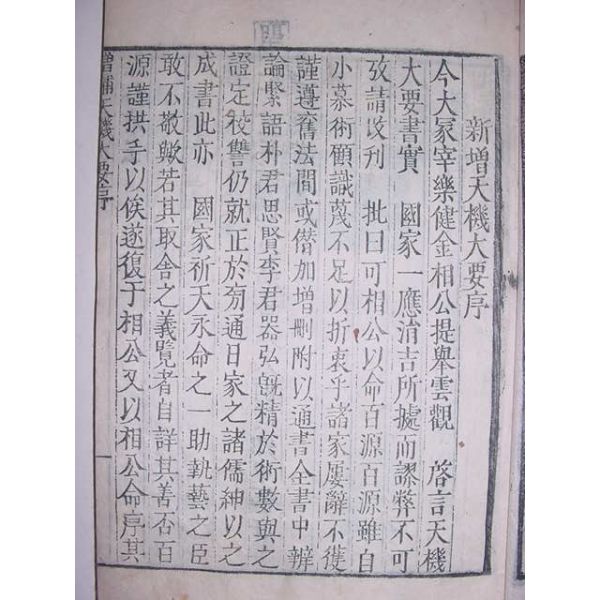 新增天機大要序
今大冢宰樂健金相公提舉雲觀 啓言天機
大要書實 國家一應涓吉所據而謬弊不可
攷請改刊 批曰可相公以命百源百源雖自
小慕術顧識蔑不足以折衷乎諸家屢辭不獲
謹遵舊法間或僭加增刪附以通書全書中辨
論緊語朴君思賢李君器弘旣精於術數與之
證定校讐仍就正於旁通日家之諸儒紳以之
成書此亦 國家祈天永命之一助執藝之臣
敢不敬歟若其取舍之義覽者自詳其善否百
源謹拱手以俟遂復于相公又以相公命序其
增補天機大要序
一